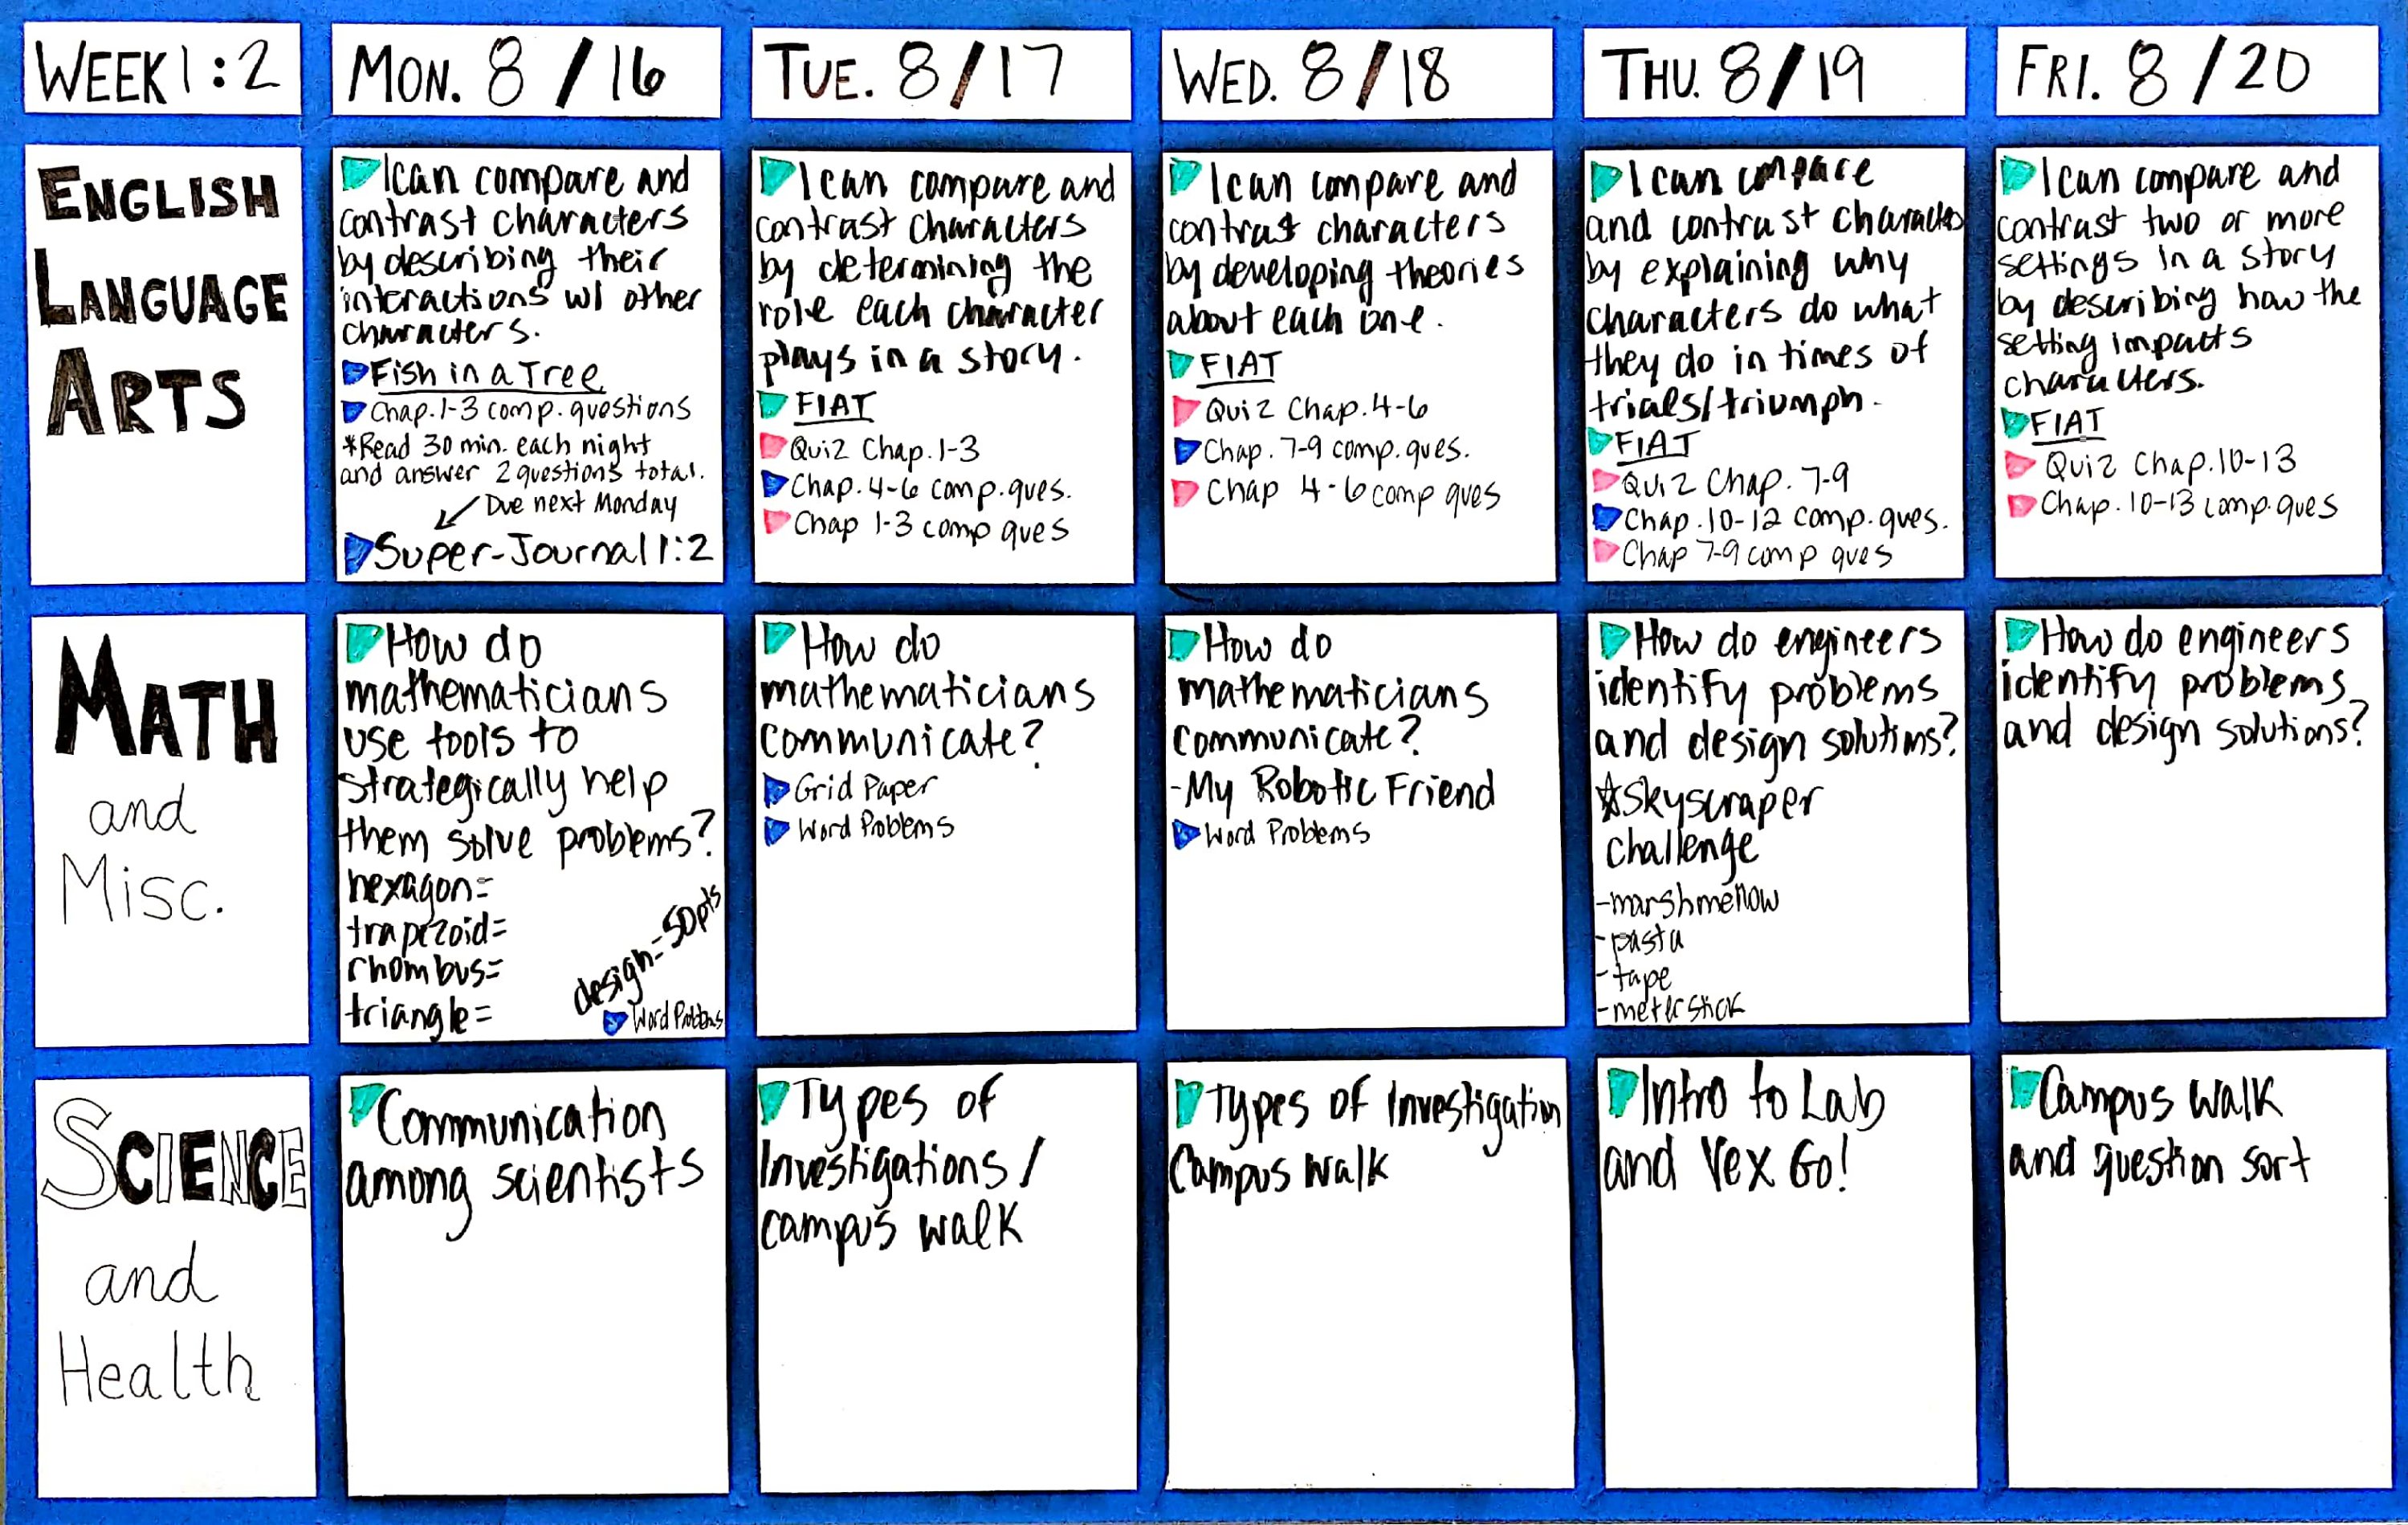 WEEK 1:2
MON. 8/16
TUE. 8/17
WED. 8/18
THU. 8/19
FRI. 8/20
ENGLISH
LANGUAGE
ARTS
I can compare and
contrast characters
by describing their
interactions w/ other
characters.
Fish in a Tree
Chap. 1-3 comp. questions
*Read 30 min. each night
and answer 2 questions total.
Due next Monday
Super-Journal 1:2
I can compare and
contrast characters
by determining the
role each character
plays in a story.
FIAT
Quiz Chap. 1-3
Chap. 4-6 comp. ques.
Chap 1-3 comp ques
I can compare and
contrast characters
by developing theories
about each one.
FIAT
Quiz Chap. 4-6
Chap. 7-9 comp. ques.
Chap 4-6 comp ques
I can compare
and contrast characters
by explaining why
characters do what
they do in times of
trials/triumph.
FIAT
Quiz Chap. 7-9
Chap. 10-12 comp. ques.
Chap 7-9 comp ques
I can compare and
contrast two or more
settings in a story
by describing how the
setting impacts
characters.
FIAT
Quiz Chap. 10-13
Chap. 10-13 comp. ques
MATH
and
Misc.
How do
mathematicians
use tools to
strategically help
them solve problems?
hexagon=
trapezoid=
rhombus=
triangle=
design=50pts
Word Problems
How do
mathematicians
communicate?
Grid Paper
Word Problems
How do
mathematicians
communicate?
-My Robotic Friend
Word Problems
How do engineers
identify problems
and design solutions?
☆Skyscraper
challenge
-marshmellow
-pasta
-tape
-meter stick
How do engineers
identify problems
and design solutions?
SCIENCE
and
Health
Communication
among scientists
Types of
Investigations/
campus walk
Types of Investigation
Campus Walk
Intro to Lab
and Vex Go!
Campus Walk
and question sort